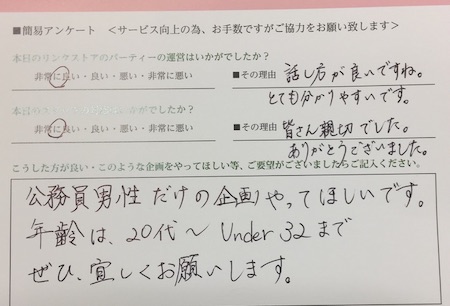 ■簡易アンケート <サービス向上の為、お手数ですがご協力をお願い致します>
本日のリンクストアのパーティーの運営はいかがでしたか?
非常に良い・良い・悪い・非常に悪い
■その理由 話し方が良いですね。
とても分かりやすいです。
本日の いかがでしたか?
非常に良い・良い・悪い・非常に悪い
■その理由 皆さん親切でした。
ありがとうございました。
こうした方が良い・このような企画をやってほしい等、ご要望がございましたらご記入ください。
公務員男性だけの企画やってほしいです。
年齢は、20代~Under 32まで
ぜひ、宜しくお願いします。